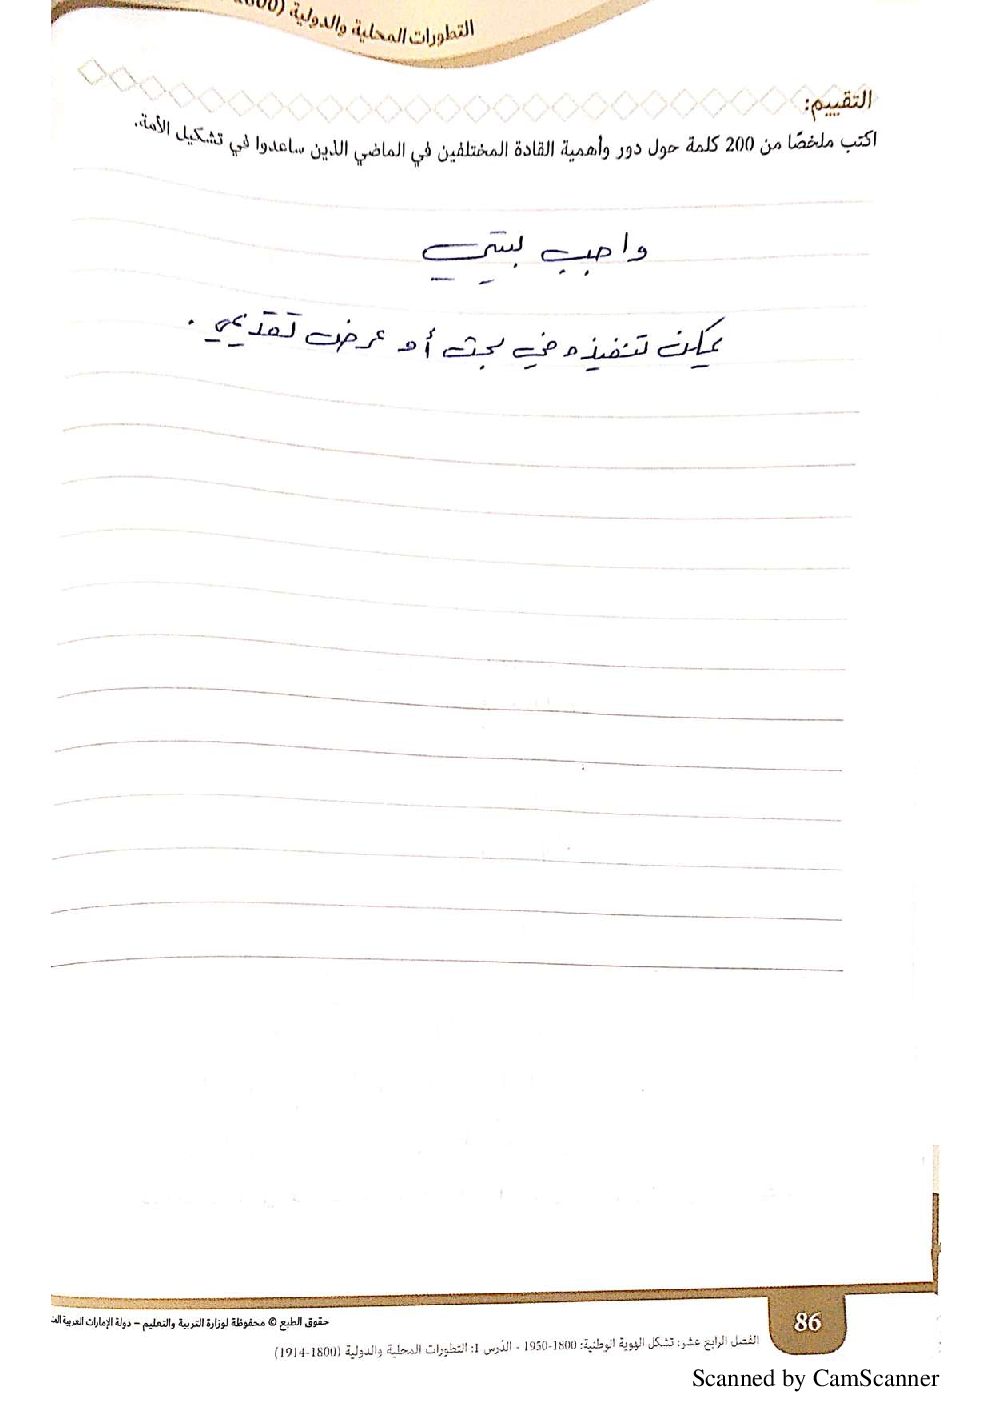 التطورات المحلية والدولية (1800
التقييم:
اكتب ملخصًا من 200 كلمة حول دور وأهمية القادة المختلفين في الماضي الذين ساعدوا في تشكيل الأمة.
واجب بيتي
يمكن تنفيذه في بحث أو عرض تقديمي .
حقوق الطبع © محفوظة لوزارة التربية والتعليم – دولة الإمارات العربية
86
الفصل الرابع عشر: تشكل الهوية الوطنية: 1800-1950 - الدرس 1: التطورات المحلية والدولية (1800-1914)
Scanned by CamScanner